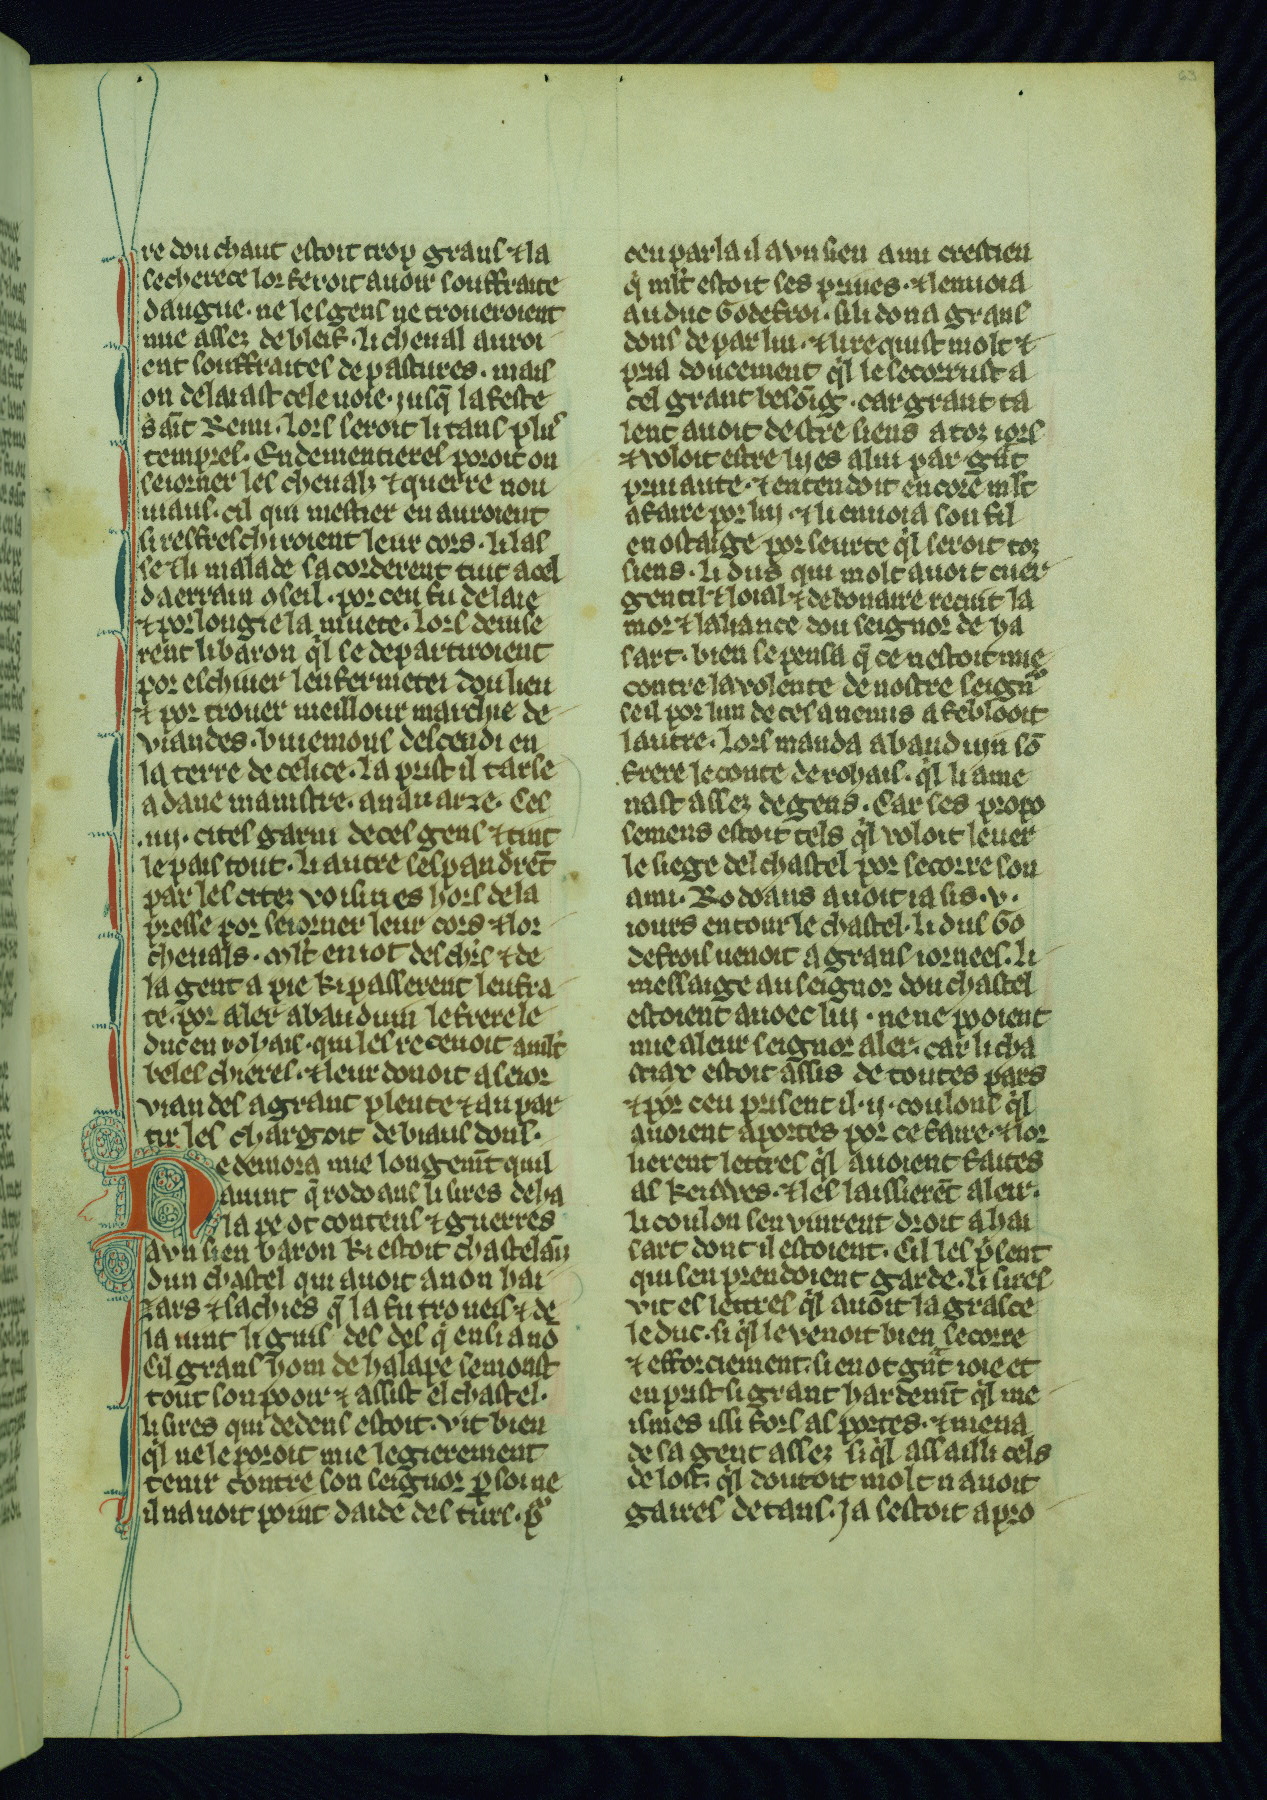 63
re dou chaut estoit trop grans ⁊ la
secherece lor feroit auoir souffraite
daugue · ne les gens ne troueroient
mie assez de bleif · li cheual auroi
ent souffraites de pastures · mais
on delaiast cele uoie · iusq̄ la feste
saīt Remi · lors seroit li tans plus
temprez · Endementieres poroit on
seiorner les cheuals ⁊ querre nou
uiaus · cil qui mestier en auroient
si resfreschiroient leur cors · li las
se ⁊ li malade sacorderent tuit a cel
daerrain oseil · por ceu fu delaie
⁊ porlougie la muete · lors deuise
rent li baron q̓l se departiroient
por eschiuer lenfermetei dou lieu
⁊ por trouer meillour marchie de
viandes · buiemons descendi en
la terre de celice · la prist il tarse
adane mamistre · anauarze · Ces
·iiij· citez garni de ces gens ⁊ tint
le pais tout · li autre sespandrēt
par les citez voisines hors de la
presse por seiorner leur cors ⁊ lor
cheuals · mlt̄ en iot des chr̄s ⁊ de
la gent a pie ki passerent leufra
te · por aler a bauduin le frere le
duc en rohais · qui les receuoit a mlt̄
beles chieres · ⁊ leur donoit a seior
viandes a grant plente ⁊ au par
tir les chargoit de biaus dons ·
Ne demora mie longemt̄ quil
auint q̄ rodoans li sires de ha
la pe ot contens ⁊ guerres
a vn sien baron ki estoit chastelaū
dun chastel qui auoit a non hai
zars ⁊ sachies q̄ la fu troueis ⁊ de
la uint li guiſ des des q̄ en li a nō
Cil grans hom de halape semonst
tout son pooir ⁊ assist el chastel ·
li sires qui dedens estoit · vit bien
q̓l ne le poroit mie legierement
tenir contre son seignor ꝑ soi ne
il nauoit point daide des turs · ꝑ
ceu parla il a vn sien ami crestien
q̓ mlt̄ estoit ses priues · ⁊ lenuoia
au duc Godefroi · si li dona grans
dons de par lui · ⁊ li requist molt ⁊
pria doucement q̓l le secorrust a
cel grant besoīg · car grant ta
lent auoit destre siens a toz iors
⁊ voloit estre lijes a lui par gn̄t
priuaute · ⁊ entendoit encore mlt̄
a faire por lui · ⁊ li enuoia son fil
en ostaige por seurte q̓l seroit toz
siens · li dus qui molt auoit cuer
gentil ⁊ loial ⁊ debonaire reciut la
mor ⁊ laliance dou seignor de ha
sart · bien se pensa q̄ ce nestoit mie
contre la volente de nostre seign̄
se il por lun de ces anemis afebloit
lautre · lors manda a bauduin sō
frere le conte de rohais · q̓l li ame
nast assez de gens · Car ses propo
semens estoit tels q̓l voloit leuer
le siege del chastel por secorre son
ami · Rodoans auoit ia sis ·v·
iours entour le chastel · li dus Go
defrois uenoit a grans iornees · li
messaige au seignor dou chastel
estoient auoec lui · ne ne pooient
mie a leur seignor aler · car li cha
stiax estoit assis de toutes pars
⁊ por ceu prisent il ·ij· coulons q̓l
auoient aportes por ce faire · ⁊ lor
lierent lettres q̓l auoient faites
as keuwes · ⁊ les laissierēt aleir ·
li coulon sen vinrent droit a hai
sart dont il estoient · Cil les p̄sent
qui sen prendoient garde · li sires
vit es lettres q̓l auoit la grasce
le duc · si q̓l le venoit bien secorre
⁊ efforciement · si en ot gn̄t ioie et
en prist si grant hardemt̄ q̓l me
ismes issi fors as portes · ⁊ mena
de sa gent assez si q̓l assailli cels
de lost · q̓l doutoit molt nauoit
gaires de tans · Ja sestoit apro